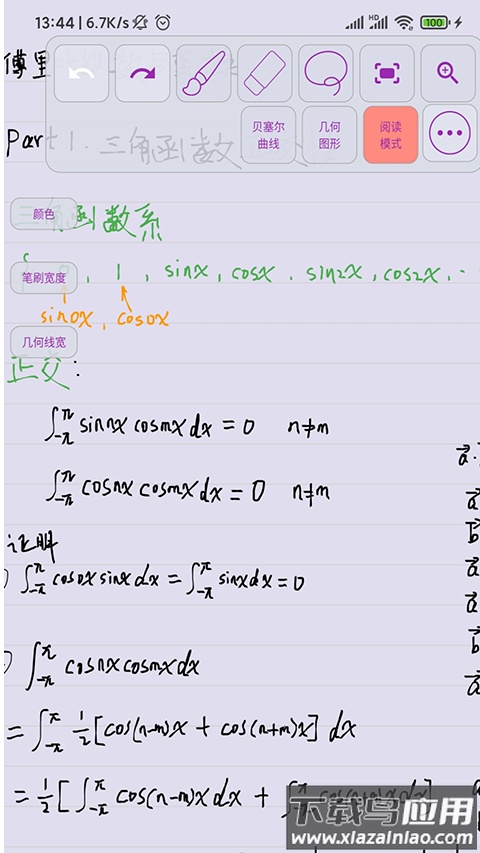 13:44 | 6.7K/s HD 100
傅里
贝塞尔曲线 几何图形 阅读模式
Part 1. 三角函数
颜色
三角函数系
笔刷宽度
{0, 1, sinx, cosx, sin2x, cos2x, ..
sin0x, cos0x
几何线宽
正交:
∫_{-π}^{π} sin nx cos mx dx = 0 n≠m
∫_{-π}^{π} cos nx cos mx dx = 0 n≠m
证明
) ∫_{-π}^{π} cos0x sinx dx = ∫_{-π}^{π} sinx dx = 0
) ∫_{-π}^{π} cos nx cos mx dx
= ∫_{-π}^{π} 1/2 [cos(n-m)x + cos(n+m)x] dx
= 1/2 [∫_{-π}^{π} cos(n-m)x dx + ∫_{-π}^{π} cos(n+m)x dx]
a⃗.
a⃗
b⃗
a⃗
a⃗
b⃗
a⃗
下载鸟应用
www.xiazainiao.com